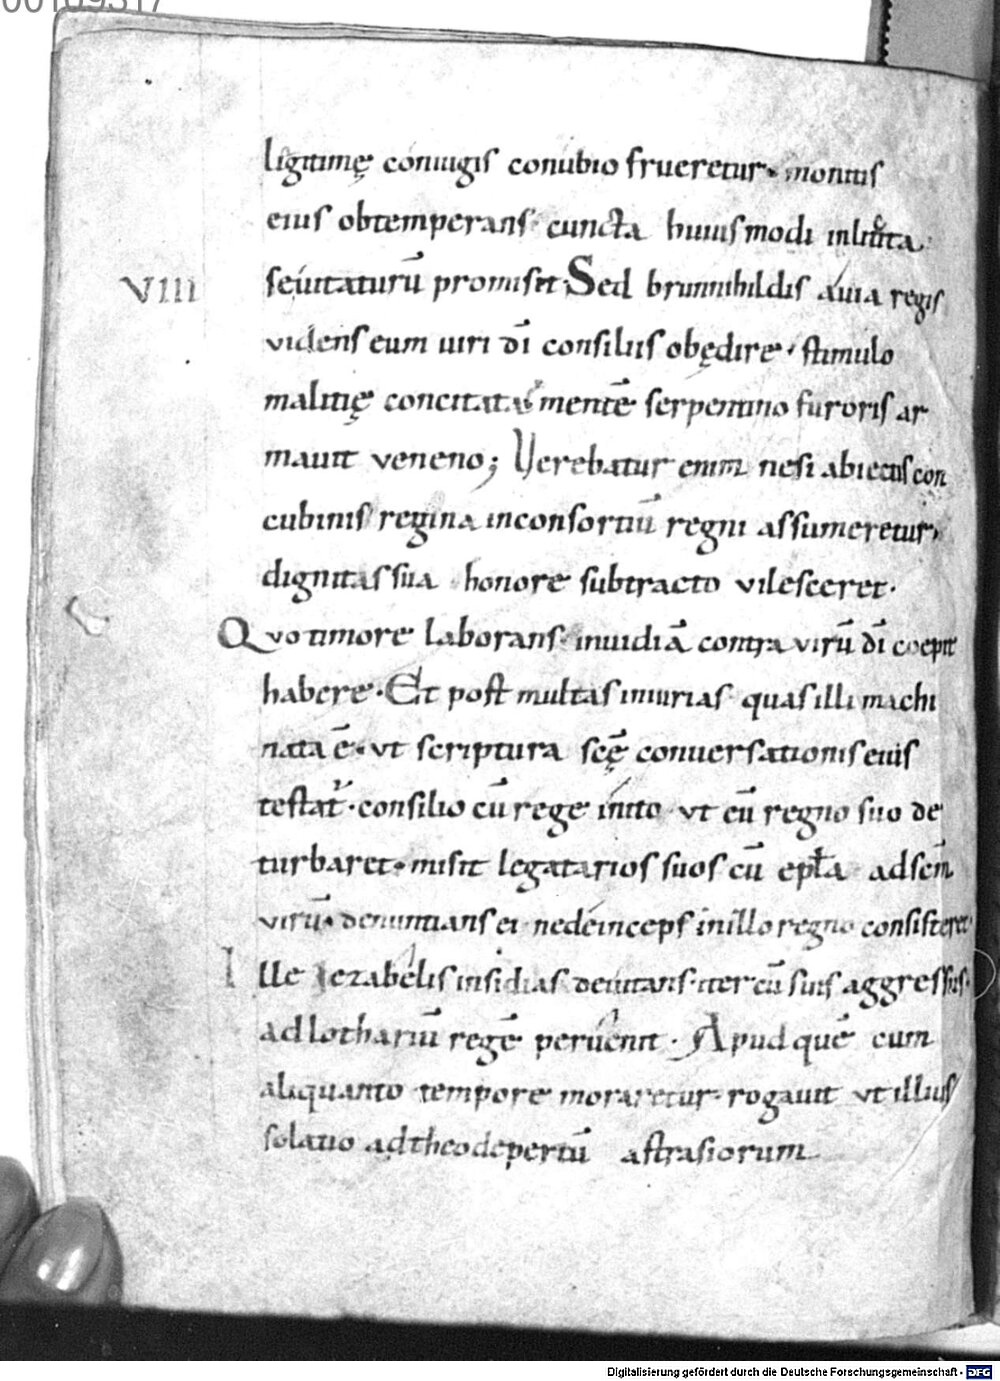 00109317
legitimę coniugis conubio frueretur. monitis
eius obtemperans cuncta huiusmodi inlicita
VIII
seuitaturū promisit. Sed brunnihildis auia regis
videns eum uiri dī consiliis obędire. stimulo
malitię concitata mentē serpentino furoris ar
mauit veneno; Verebatur enim nesi abiectis con
cubinis regina inconsortiū regni assumeretur.
dignitas sua honore subtracto vilesceret.
Quo timore laborans inuidiā contra virū dī coepit
habere. Et post multas iniurias quas illi machi
nata ē. vt scriptura scę̄ conuersationis eius
testat. consilio cū rege inito vt eū regno suo de
turbaret. misit legatarios suos cū epła ad scm̄
virū. denuntians ei nedeinceps inillo regno consisteret
Ille Iezabelis insidias deuitans. iter cū suis aggressus.
ad lothariū regē peruenit. Apud quē cum
aliquanto tempore moraretur. rogauit vt illius
solatio ad theodepertū astrasiorum
Digitalisierung gefördert durch die Deutsche Forschungsgemeinschaft - DFG